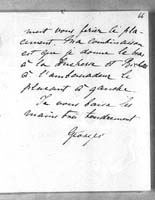 66
vous
cement. Ma combinaison
est que je donne le bras
à la Duchesse et
à l'ambassadeur le
plaçant à gauche.
Je vous baise les
mains bien tendrement
Georges